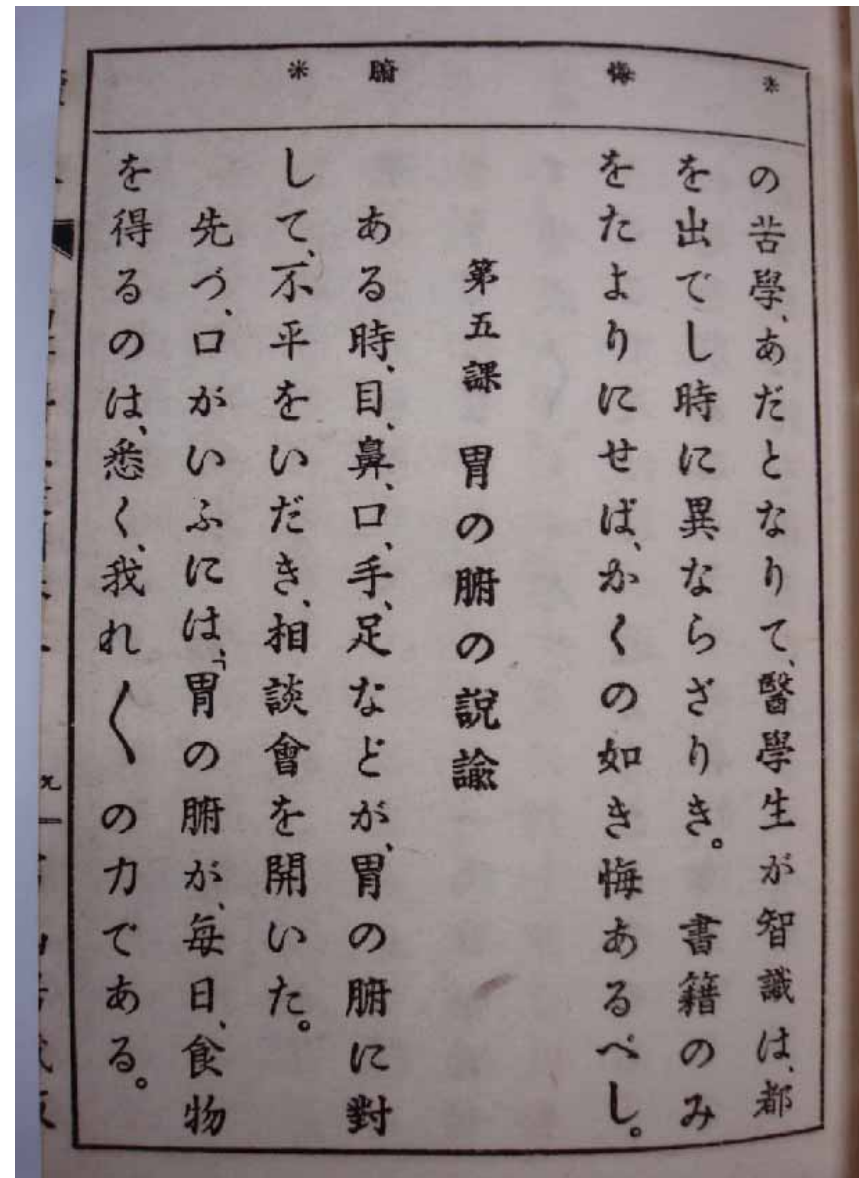 ※
悔
腑
※
の苦學、あだとなりて、醫學生が智識は、都
を出でし時に異ならざりき。　書籍のみ
をたよりにせば、かくの如き悔あるべし。
第五課　胃の腑の説諭
ある時、目、鼻、口、手、足などが、胃の腑に對
して、不平をいだき、相談會を開いた。
先づ、口がいふには、「胃の腑が、毎日、食物
を得るのは、悉く、我れ〱の力である。